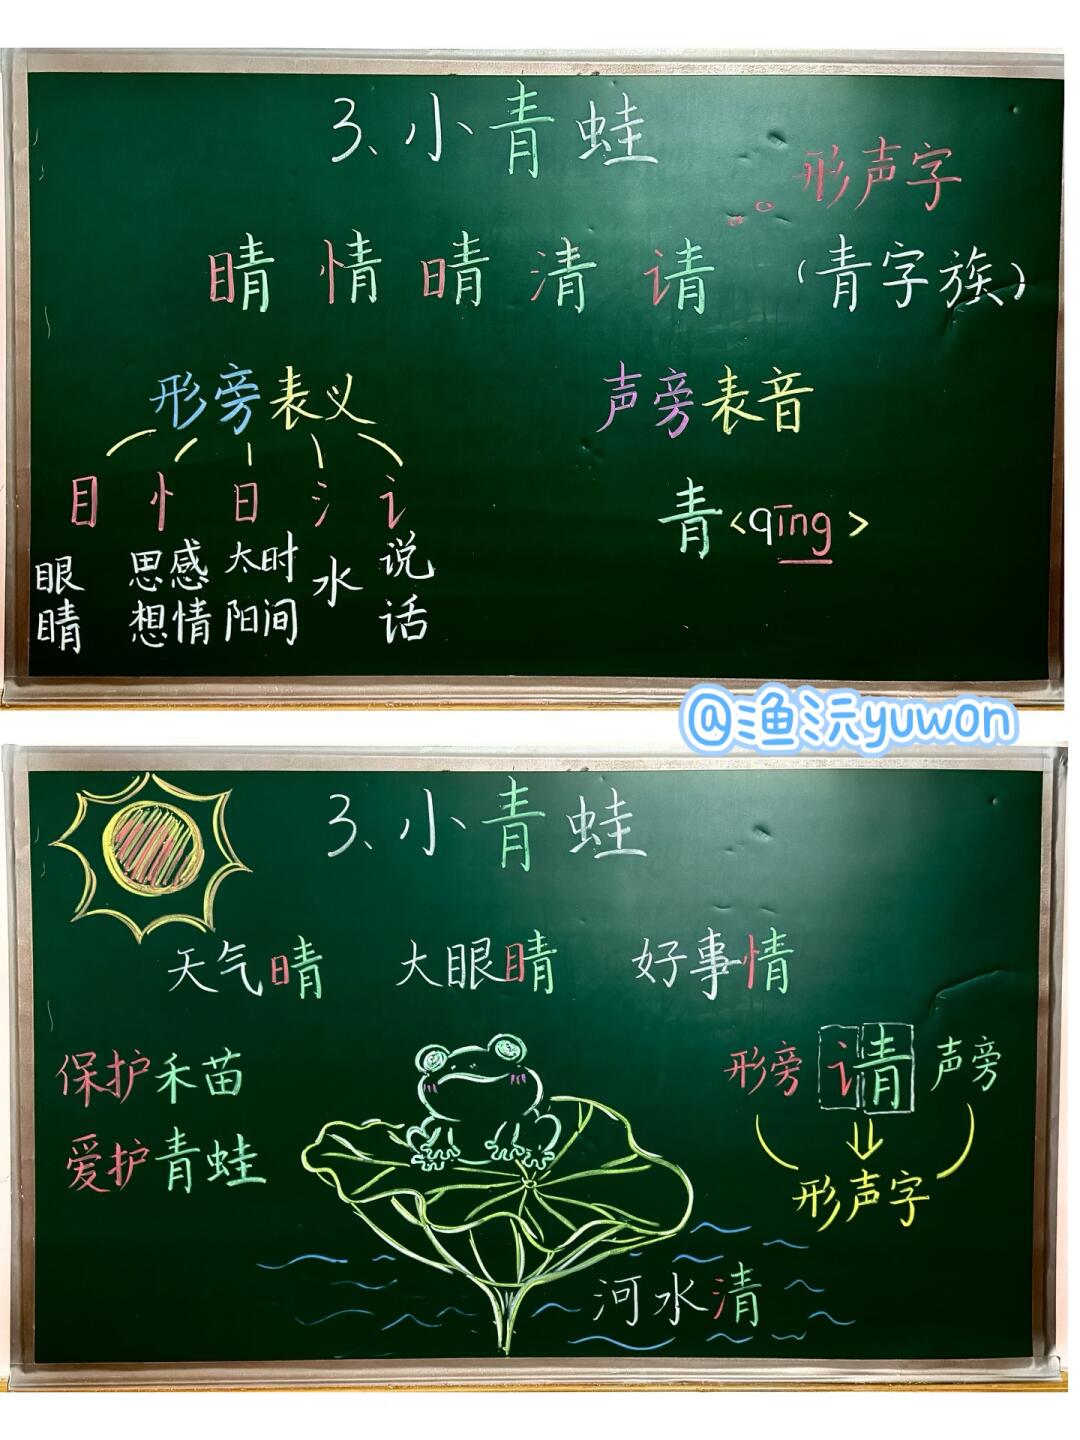 3、小青蛙
形声字
睛 情 晴 清 请 (青字族)
形旁表义
声旁表音
目 忄 日 氵 讠
眼睛 思想 感情 太阳 时间 水 说话
青<qīng>
@渔沅yuwon
3、小青蛙
天气晴 大眼睛 好事情
保护禾苗
爱护青蛙
形旁 请 声旁
形声字
河水清